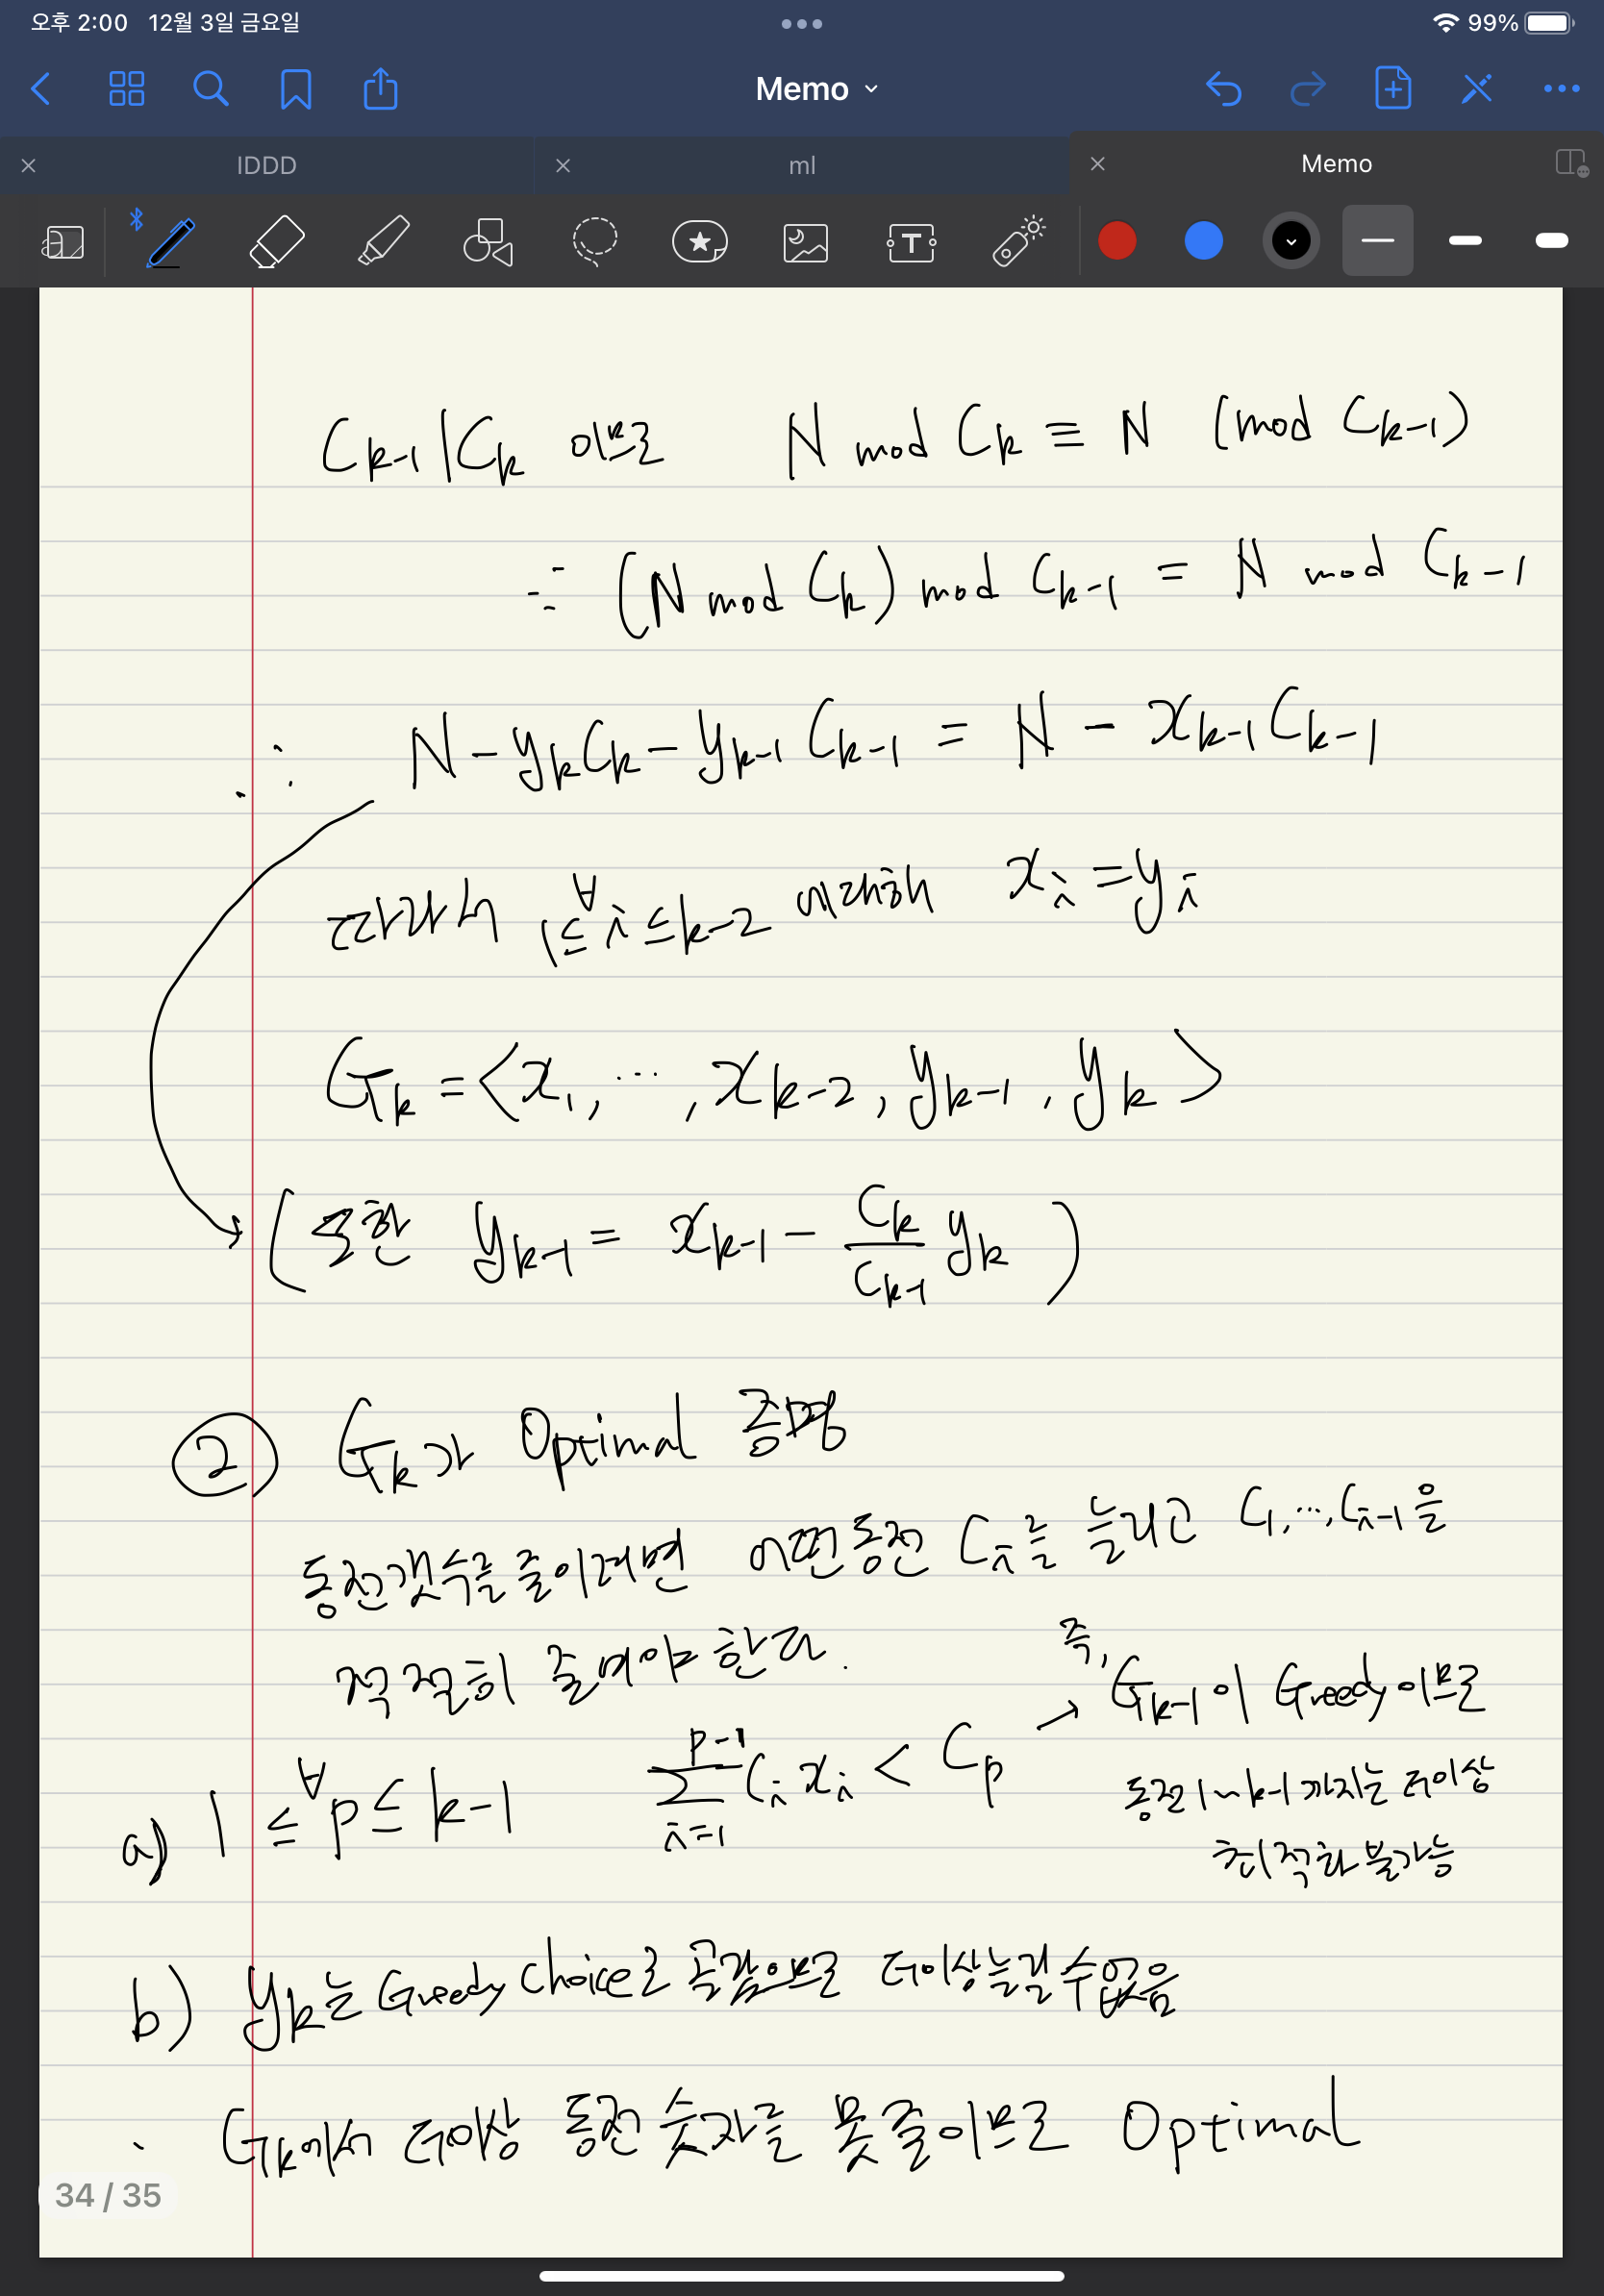 오후 2:00 12월 3일 금요일 99%
Memo
IDDD ml Memo
C_{k-1} | C_k 이므로 N mod C_k ≡ N (mod C_{k-1})
∴ (N mod C_k) mod C_{k-1} = N mod C_{k-1}
∴ N - y_k C_k - y_{k-1} C_{k-1} = N - x_{k-1} C_{k-1}
따라서 1 ≤ ∀i ≤ k-2 에 대해 x_i = y_i
G_k = <x_1, ..., x_{k-2}, y_{k-1}, y_k>
(또한 y_{k-1} = x_{k-1} - \frac{C_k}{C_{k-1}} y_k)
② G_k가 Optimal 증명
동전 갯수를 줄이려면 어떤 동전 C_i를 늘리고 C_1, ..., C_{i-1}을
적절히 줄여야 한다.
a) 1 ≤ ∀p ≤ k-1 \sum_{i=1}^{p-1} C_i x_i < C_p
→ 즉, G_{k-1}이 Greedy이므로
동전 1~k-1 까지는 더이상
최적화 불가능
b) y_k는 Greedy choice로 골랐으므로 더이상 늘릴 수 없음
∴ G_k에서 더이상 동전 숫자를 못 줄이므로 Optimal
34 / 35